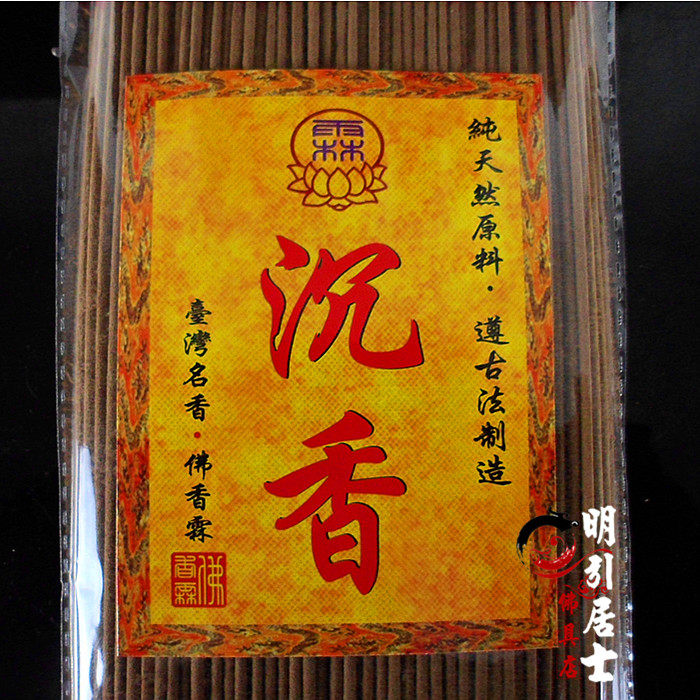 霖
純天然原料·遵古法制造
沉香
臺灣名香·佛香霖
佛香霖
明引居士
佛具店